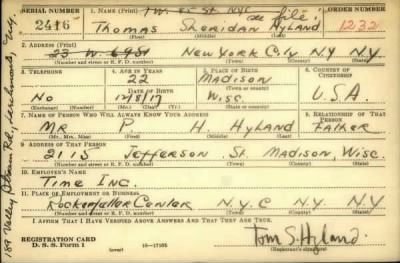 SERIAL NUMBER
1. NAME (Print)
ORDER NUMBER
2416
see file.
Thomas Sheridan Hyland
1232
(First) (Middle) (Last)
2. ADDRESS (Print)
23 W. 69 St New York City N.Y N.Y
(Number and street or R. F. D. number) (Town) (County) (State)
3. TELEPHONE
4. AGE IN YEARS
5. PLACE OF BIRTH
6. COUNTRY OF CITIZENSHIP
22
Madison
DATE OF BIRTH
No
12/8/17
Wisc.
U.S.A.
(Mo.) (Day) (Yr.)
7. NAME OF PERSON WHO WILL ALWAYS KNOW YOUR ADDRESS
8. RELATIONSHIP OF THAT PERSON
Mr P H. Hyland Father
(Mr., Mrs., Miss) (First) (Middle) (Last)
9. ADDRESS OF THAT PERSON
2115 Jefferson St. Madison, Wisc.
(Number and street or R. F. D. number) (Town) (County) (State)
10. EMPLOYER'S NAME
Time Inc.
11. PLACE OF EMPLOYMENT OR BUSINESS
Rockefeller Center N.Y.C N.Y. NY
(Number and street or R. F. D. number) (Town) (County) (State)
I AFFIRM THAT I HAVE VERIFIED ABOVE ANSWERS AND THAT THEY ARE TRUE.
REGISTRATION CARD
D. S. S. Form 1
16—17105
Tom S. Hyland.
(Registrant's signature)
189 Valley Rd., Larchmont, N.Y.